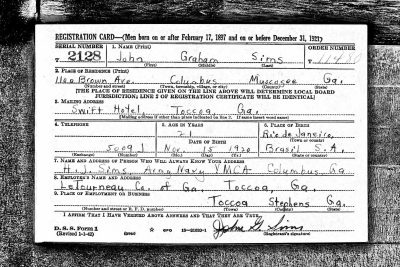 REGISTRATION CARD—(Men born on or after February 17, 1897 and on or before December 31, 1921)
SERIAL NUMBER 1. NAME (Print) ORDER NUMBER
2128 John Graham Sims
(First) (Middle) (Last)
2. PLACE OF RESIDENCE (Print)
Brown Ave. Columbus Muscogee Ga.
(Number and street) (Town, township, village, or city) (County) (State)
[THE PLACE OF RESIDENCE GIVEN ON THE LINE ABOVE WILL DETERMINE LOCAL BOARD
JURISDICTION; LINE 2 OF REGISTRATION CERTIFICATE WILL BE IDENTICAL]
3. MAILING ADDRESS
Swift Hotel Toccoa, Ga.
[Mailing address if other than place indicated on line 2. If same insert word same]
4. TELEPHONE 5. AGE IN YEARS 6. PLACE OF BIRTH
21 Rio de Janeiro,
DATE OF BIRTH (Town or county)
5009 J Nov. 15 1920 Brasil S.A.
(Exchange) (Number) (Mo.) (Day) (Yr.) (State or country)
7. NAME AND ADDRESS OF PERSON WHO WILL ALWAYS KNOW YOUR ADDRESS
H. J. Sims Army Navy YMCA Columbus, Ga.
8. EMPLOYER'S NAME AND ADDRESS
Letourneau Co. of Ga. Toccoa, Ga.
9. PLACE OF EMPLOYMENT OR BUSINESS
Toccoa Stephens Ga.
(Number and street or R. F. D. number) (Town) (County) (State)
I AFFIRM THAT I HAVE VERIFIED ABOVE ANSWERS AND THAT THEY ARE TRUE.
D. S. S. Form 1
(Revised 1-1-42) John G. Sims
(Registrant's signature)